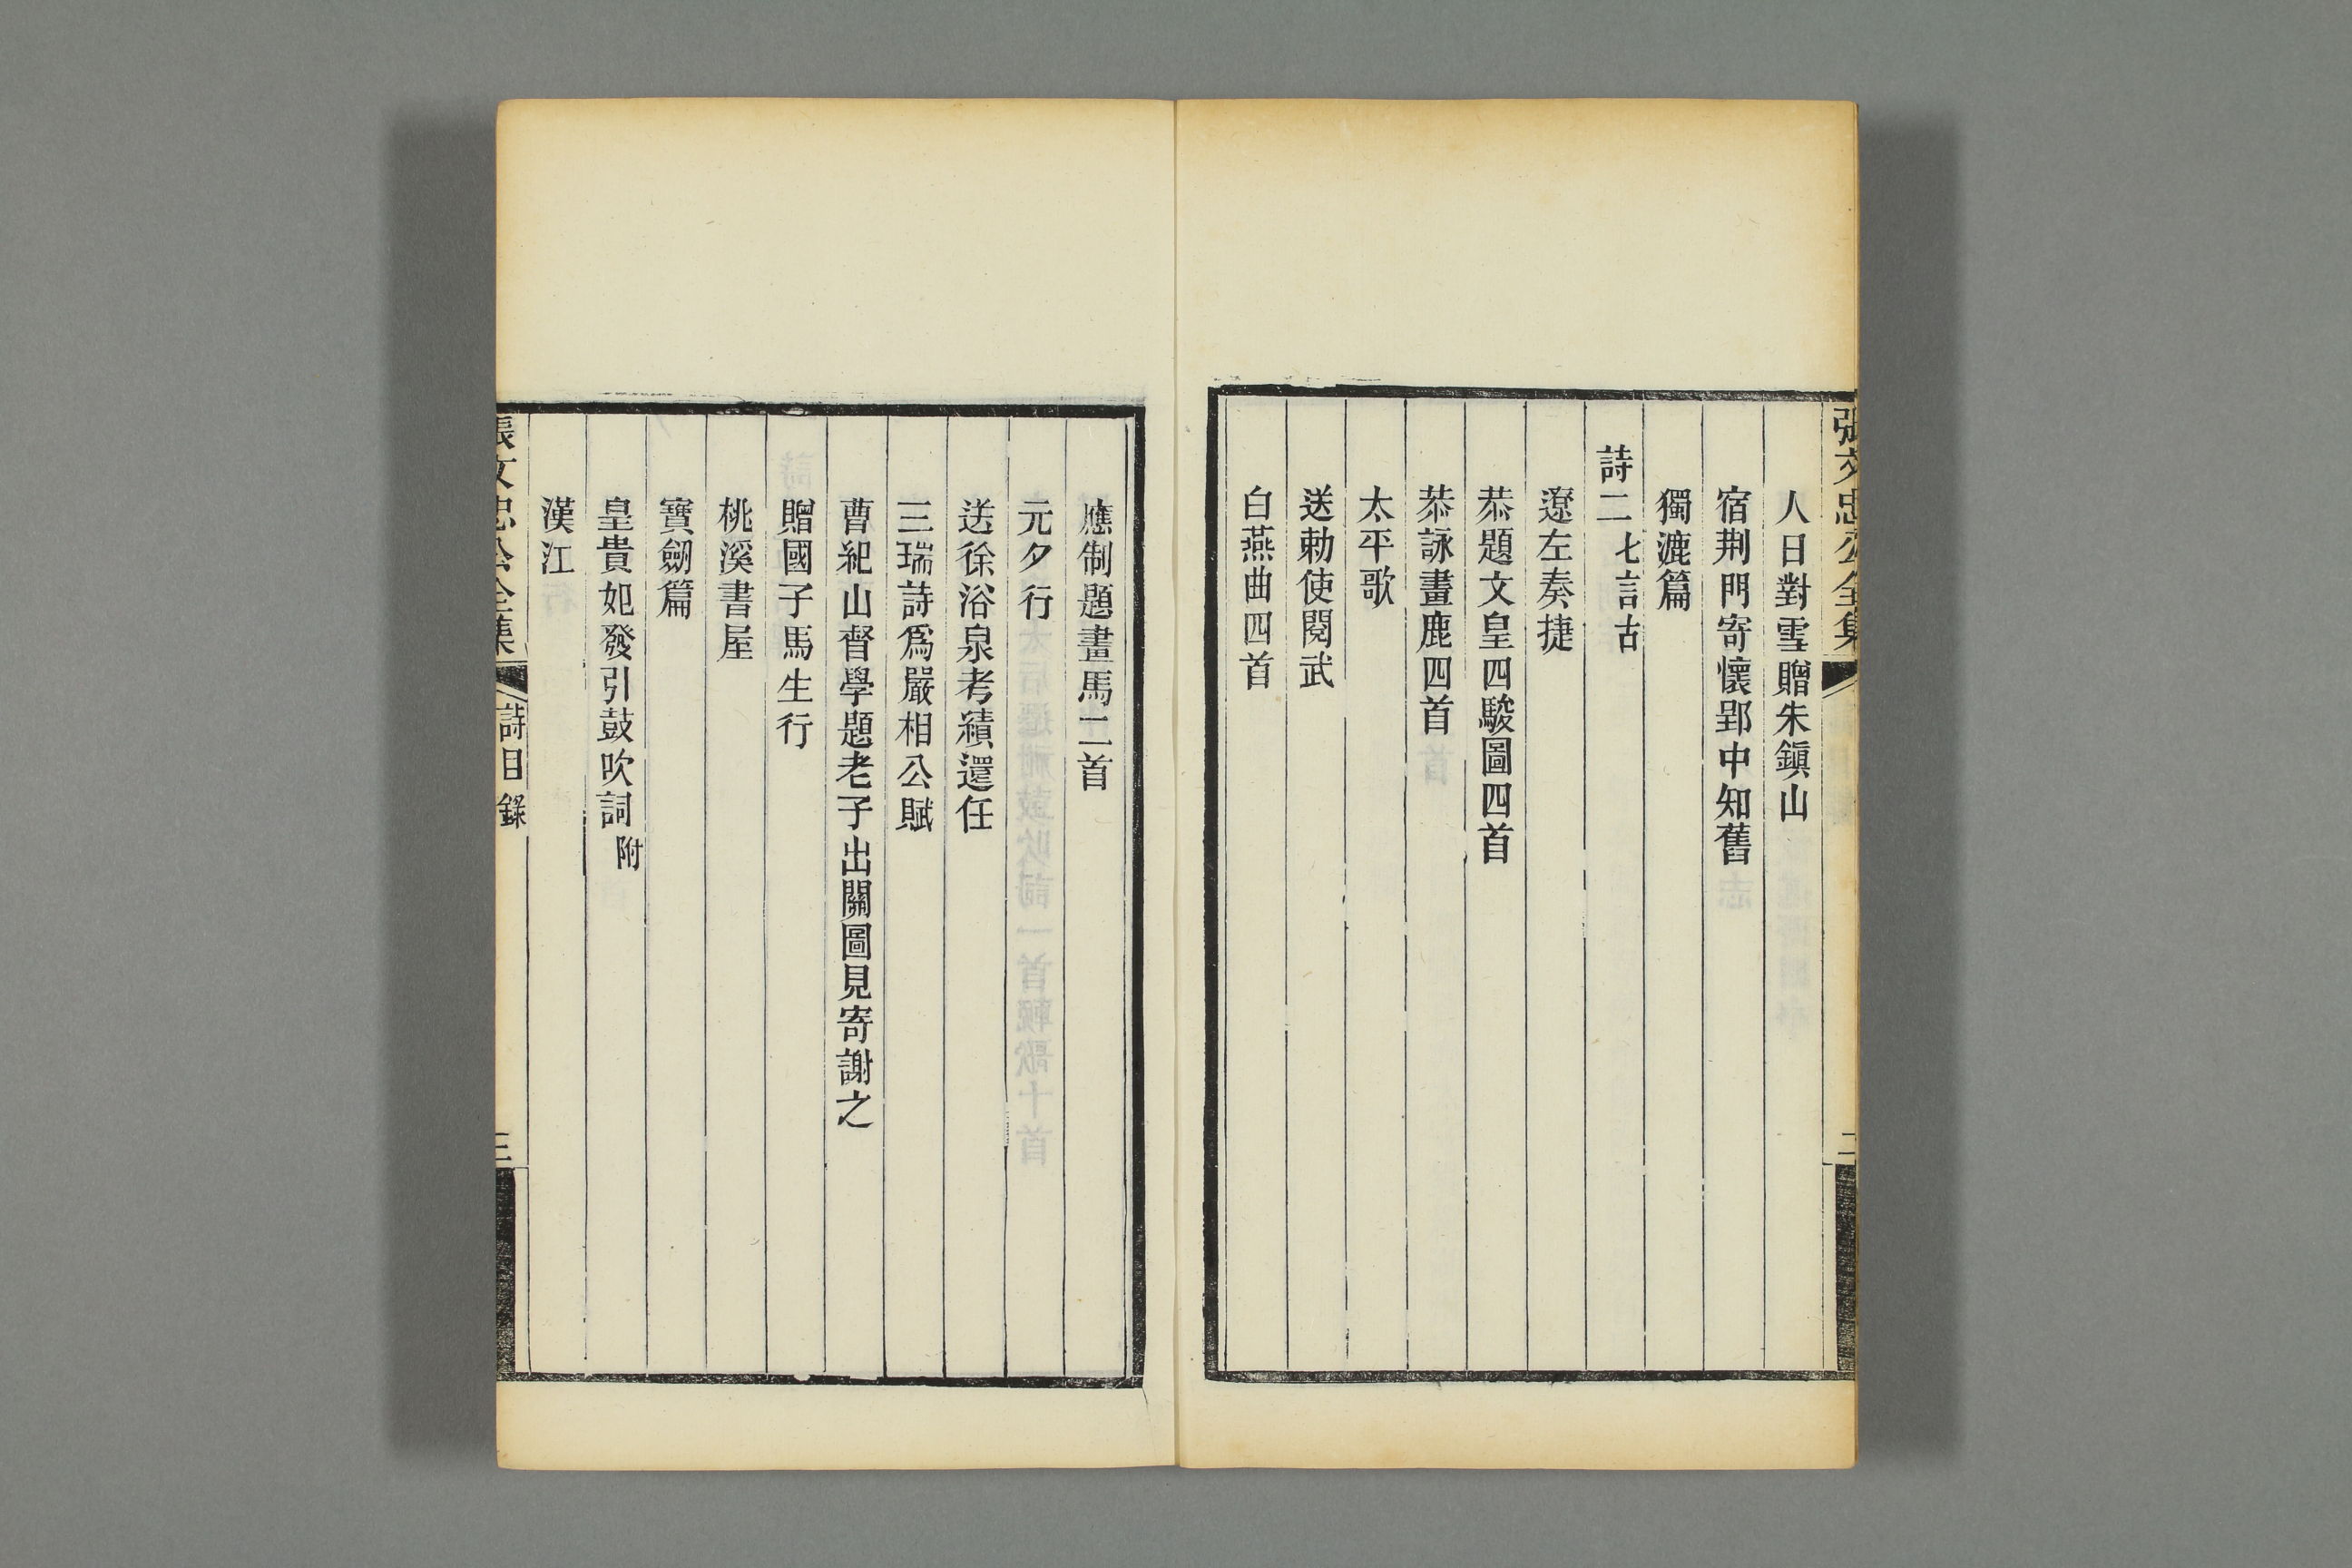 張文忠公全集
二
人日對雪贈朱鎭山
宿荆門寄懷郢中知舊
獨漉篇
詩二 七言古
遼左奏捷
恭題文皇四駿圖四首
恭詠畫鹿四首
太平歌
送勅使閱武
白燕曲四首
應制題畫馬二首
元夕行
送徐浴泉考績還任
三瑞詩爲嚴相公賦
曹紀山督學題老子出關圖見寄謝之
贈國子馬生行
桃溪書屋
寶劒篇
皇貴妃發引鼓吹詞 附
漢江
張文忠公全集
詩目錄
三